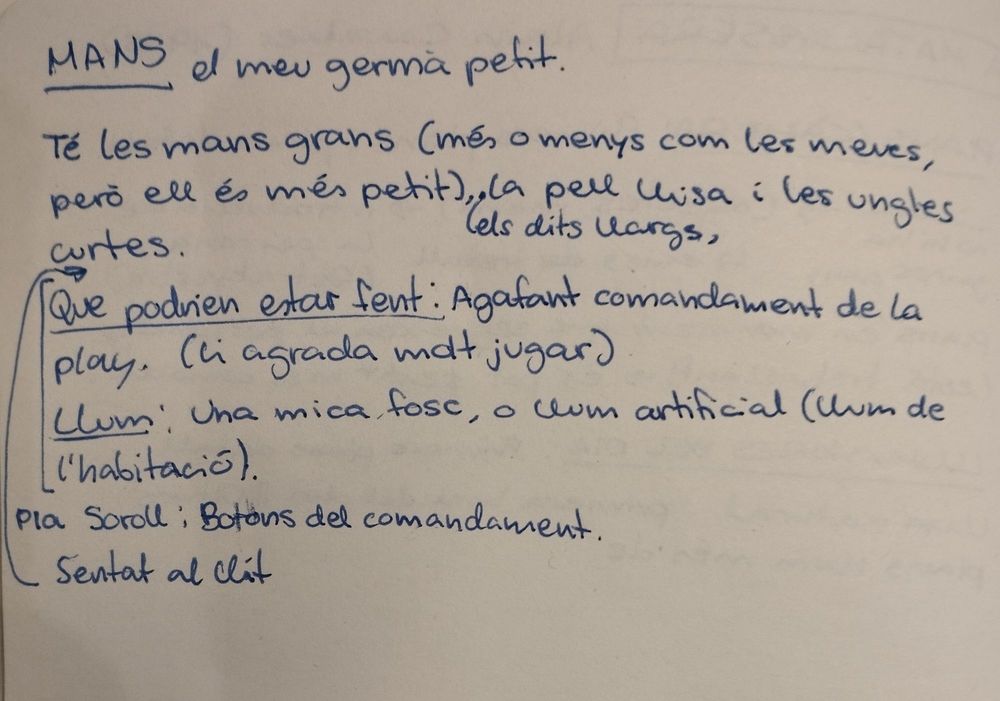 MANS el meu germà petit.
Té les mans grans (més o menys com les meves,
però ell és més petit), la pell llisa i les ungles
els dits llargs,
curtes.
Que podrien estar fent: Agafant comandament de la
play. (li agrada molt jugar)
Llum: Una mica fosc, o llum artificial (llum de
l'habitació).
Pla Soroll: Botons del comandament.
Sentat al llit